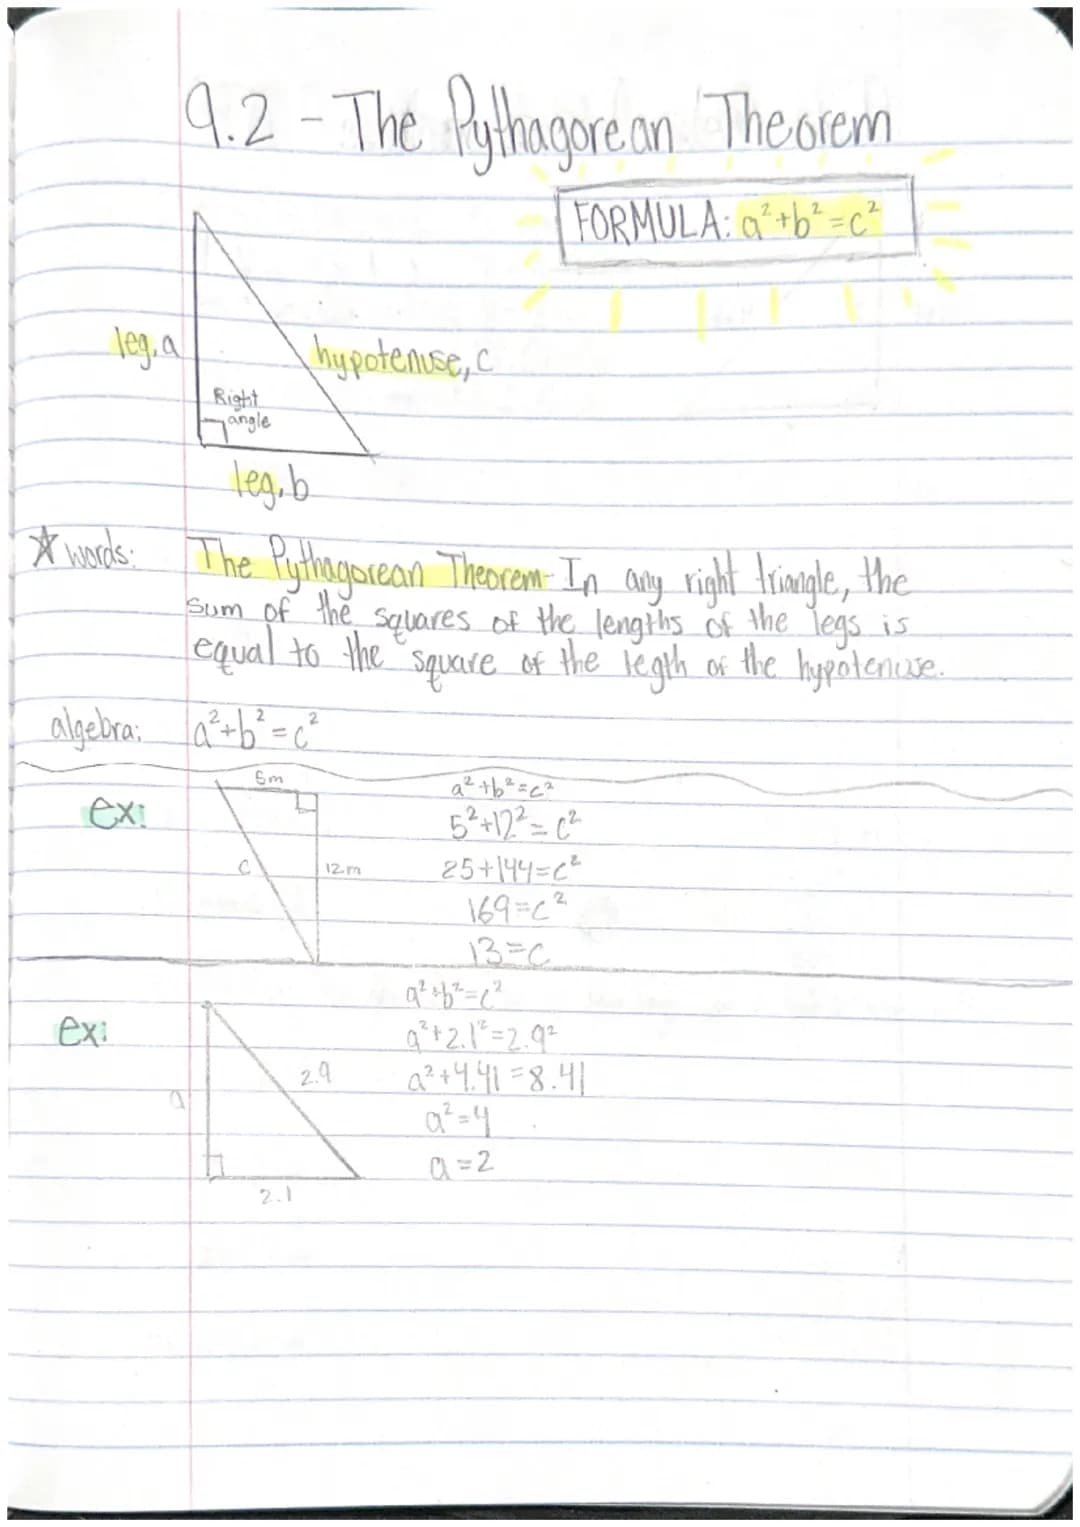 9.2 - The Pythagorean Theorem
FORMULA: a²+b²=c²
leg, a
hypotenuse, c
Right
angle
leg, b
☆ words: The Pythagorean Theorem - In any right triangle, the
sum of the squares of the lengths of the legs is
equal to the square of the legth of the hypotenuse.
algebra: a²+b²=c²
ex:
5m
c
12m
a²+b²=c²
5²+12²=c²
25+144=c²
169=c²
13=c
ex:
a
2.9
2.1
a²+b²=c²
a²+2.1²=2.9²
a²+4.41=8.41
a²=4
a=2